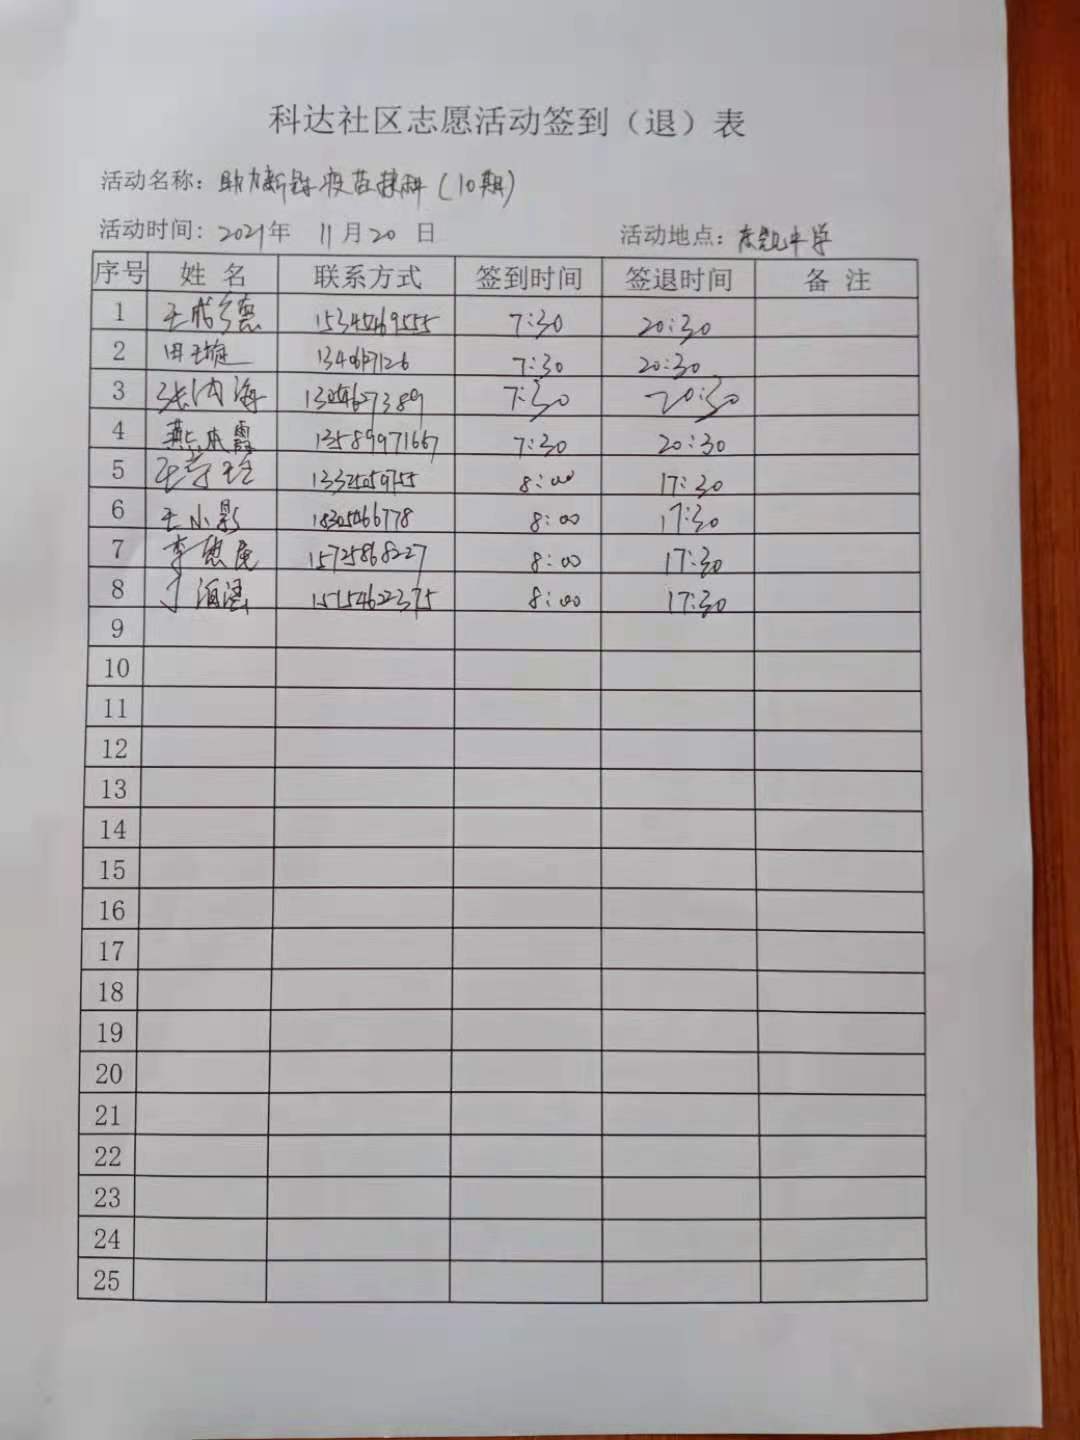 科达社区志愿活动签到（退）表
活动名称：助力新冠疫苗接种（10期）
活动时间：2021年 11月20日 活动地点：东凯中学
序号 姓名 联系方式 签到时间 签退时间 备注
1 王 德 15345469555 7:30 20:30
2 田 7:30 20:30
3 张 海 7:30 20:30
4 燕 霞 13589971667 7:30 20:30
5 王 8:00 17:30
6 王小影 18305466778 8:00 17:30
7 李 15725868227 8:00 17:30
8 丁 15154622375 8:00 17:30
9
10
11
12
13
14
15
16
17
18
19
20
21
22
23
24
25